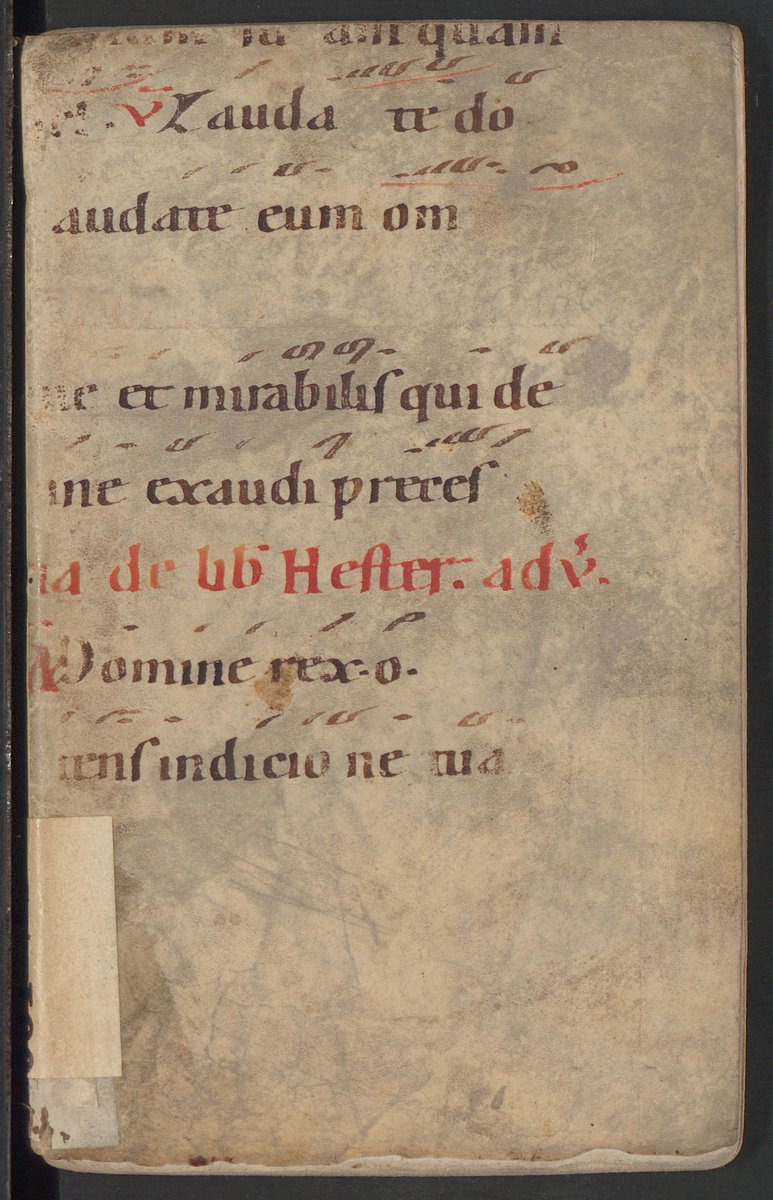 am quam
v Lauda te do
audate eum om
ne et mirabilis qui de
ine exaudi preces
ia de lib Hester. ad v.
Domine rex. o.
tens in dicio ne tua